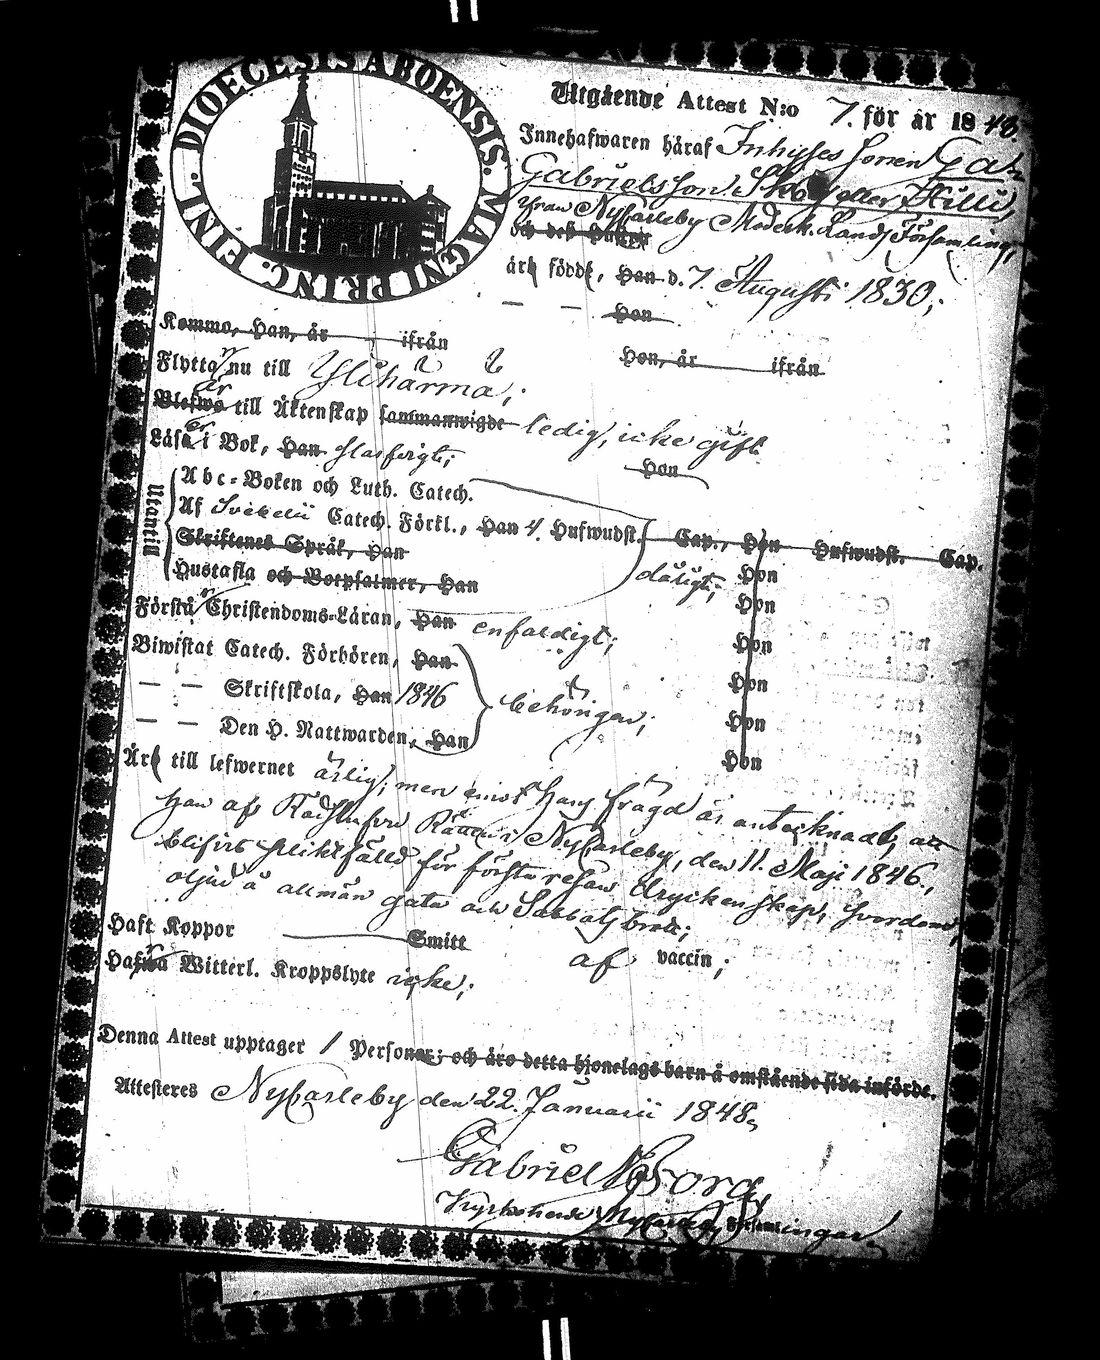 DIOECESIS ABOENSIS. MAGNI PRINC. FINL.
Utgående Attest N:o 7. för år 1848.
Innehafwaren häraf Inhyses sonen Ga-
Gabrielsson eller Hilli,
ifrån Nykarleby Moderk. Lands Församling,
och des Hustru
är född, Han d. 7. Augusti 1830;
— — Hon
Kommo, Han, år ifrån
Hon, år ifrån
Flyttar nu till Ylihärmä;
Blefwo är till Äktenskap sammanwigde ledig, icke gift
Läser i Bok, Han slarfvigt; Hon
Utantill
Abc-Boken och Luth. Catech.
Af Svebelii Catech. Förkl., Han 4 Hufwudst. Cap., Hon Hufwudst. Cap.
Skriftenes Språk, Han dåligt; Hon
Hustafla och Botpsalmer, Han Hon
Förstår Christendoms-Läran, Han enfaldigt; Hon
Biwistat Catech. Förhören, Han Hon
— — Skriftskola, Han 1846 behörigen; Hon
— — Den H. Nattwarden, Han Hon
Är till lefwernet ärlig, men hans frägd är antecknadt, att
han af Rådhufvu Rätten i Nykarleby, den 11. Maji 1846,
blifvit pliktfälld för första resan dryckenskap, svordom,
oljud å allmän gata och Sabbatsbrott;
Haft Koppor Smitt af vaccin;
Hafwa Witterl. Kroppslyte icke;
Denna Attest upptager 1 Personer; och äro detta hjonelags barn å omstående sida införde.
Attesteres Nykarleby den 22. Januarii 1848,
Gabriel Borg,
Kyrkoherde Nykarleby Församlingar